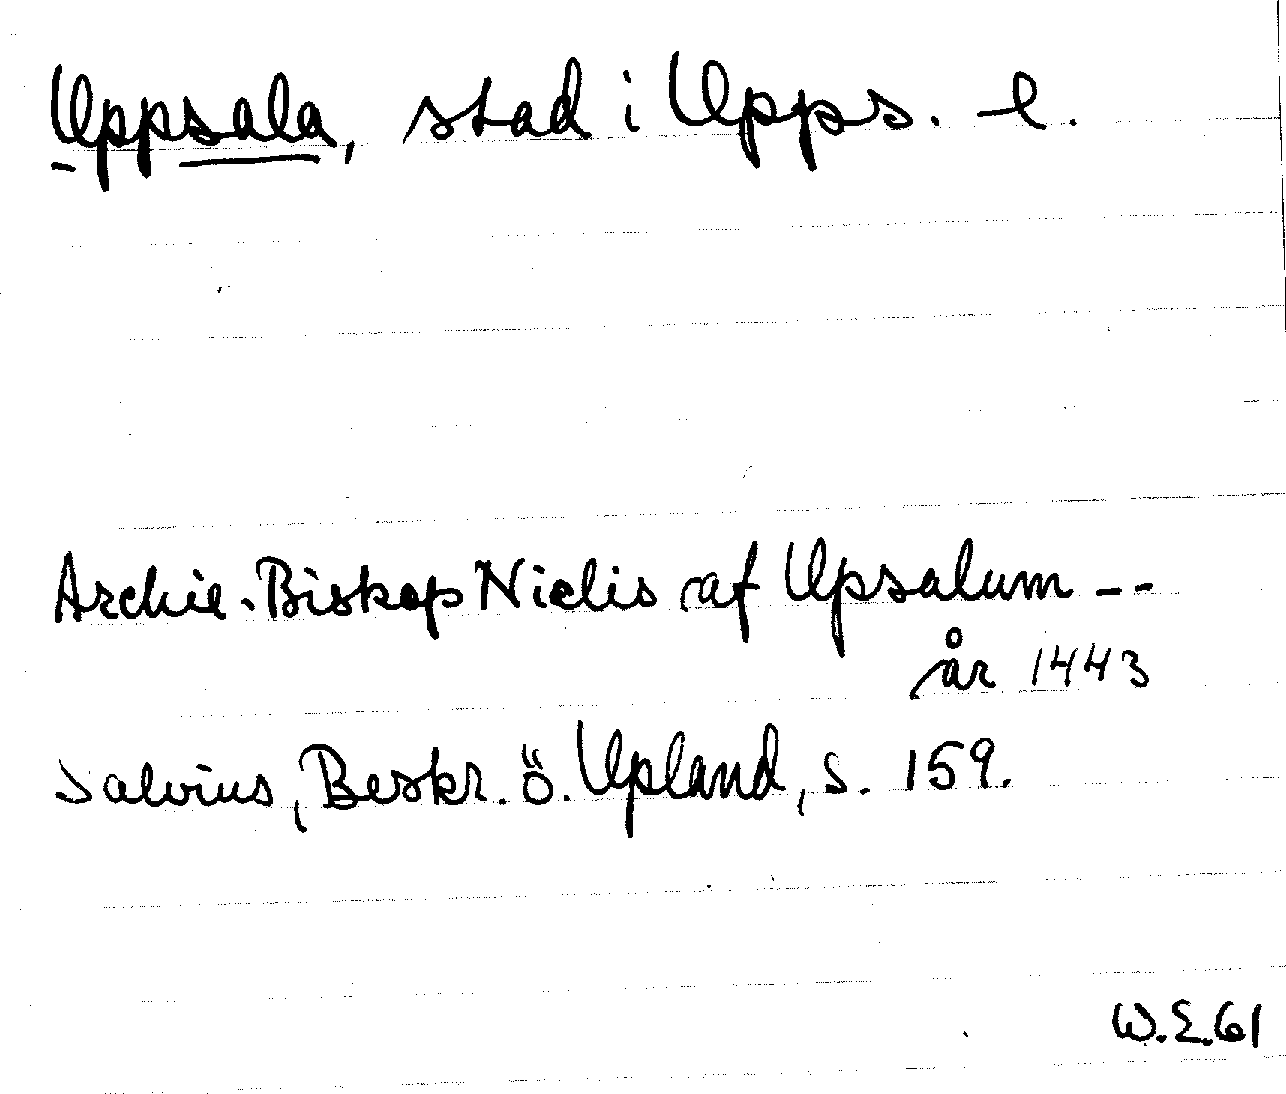 Uppsala, stad i Upps. l.
Archie-Biskop Nielis af Upsalum --
år 1443
Salvius, Beskr. ö. Upland, s. 159.
W.E.61